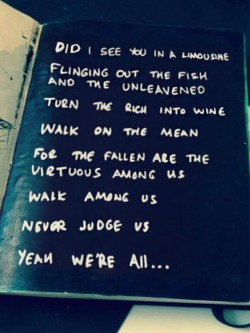 DID I SEE YOU IN A LIMOUSINE
FLINGING OUT THE FISH
AND THE UNLEAVENED
TURN THE RICH INTO WINE
WALK ON THE MEAN
FOR THE FALLEN ARE THE
VIRTUOUS AMONG US
WALK AMONG US
NEVER JUDGE US
YEAH WE'RE ALL...